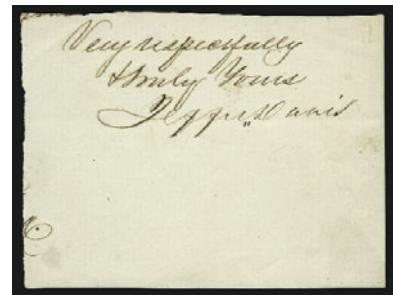 Very respectfully
& truly Yours
Jeffn Davis